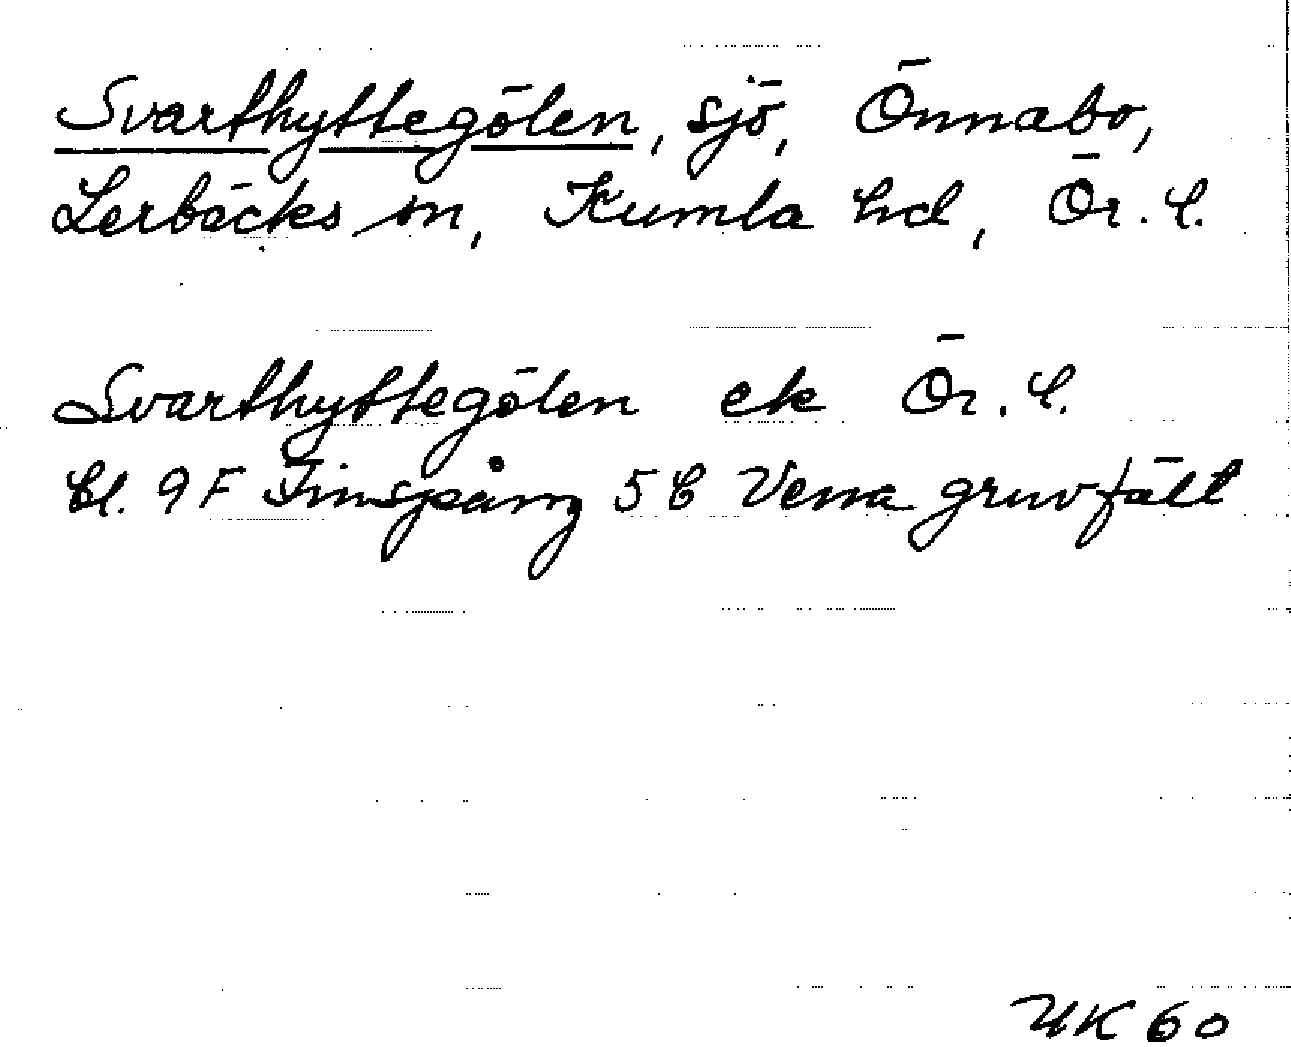 Svarthyttegölen, sjö, Önnabo,
Lerbäcks sn, Kumla hd, Ör. l.
Svarthyttegölen ek Ör. l.
bl. 9 F Finspång 5 b Vena gruvfält
UK 60